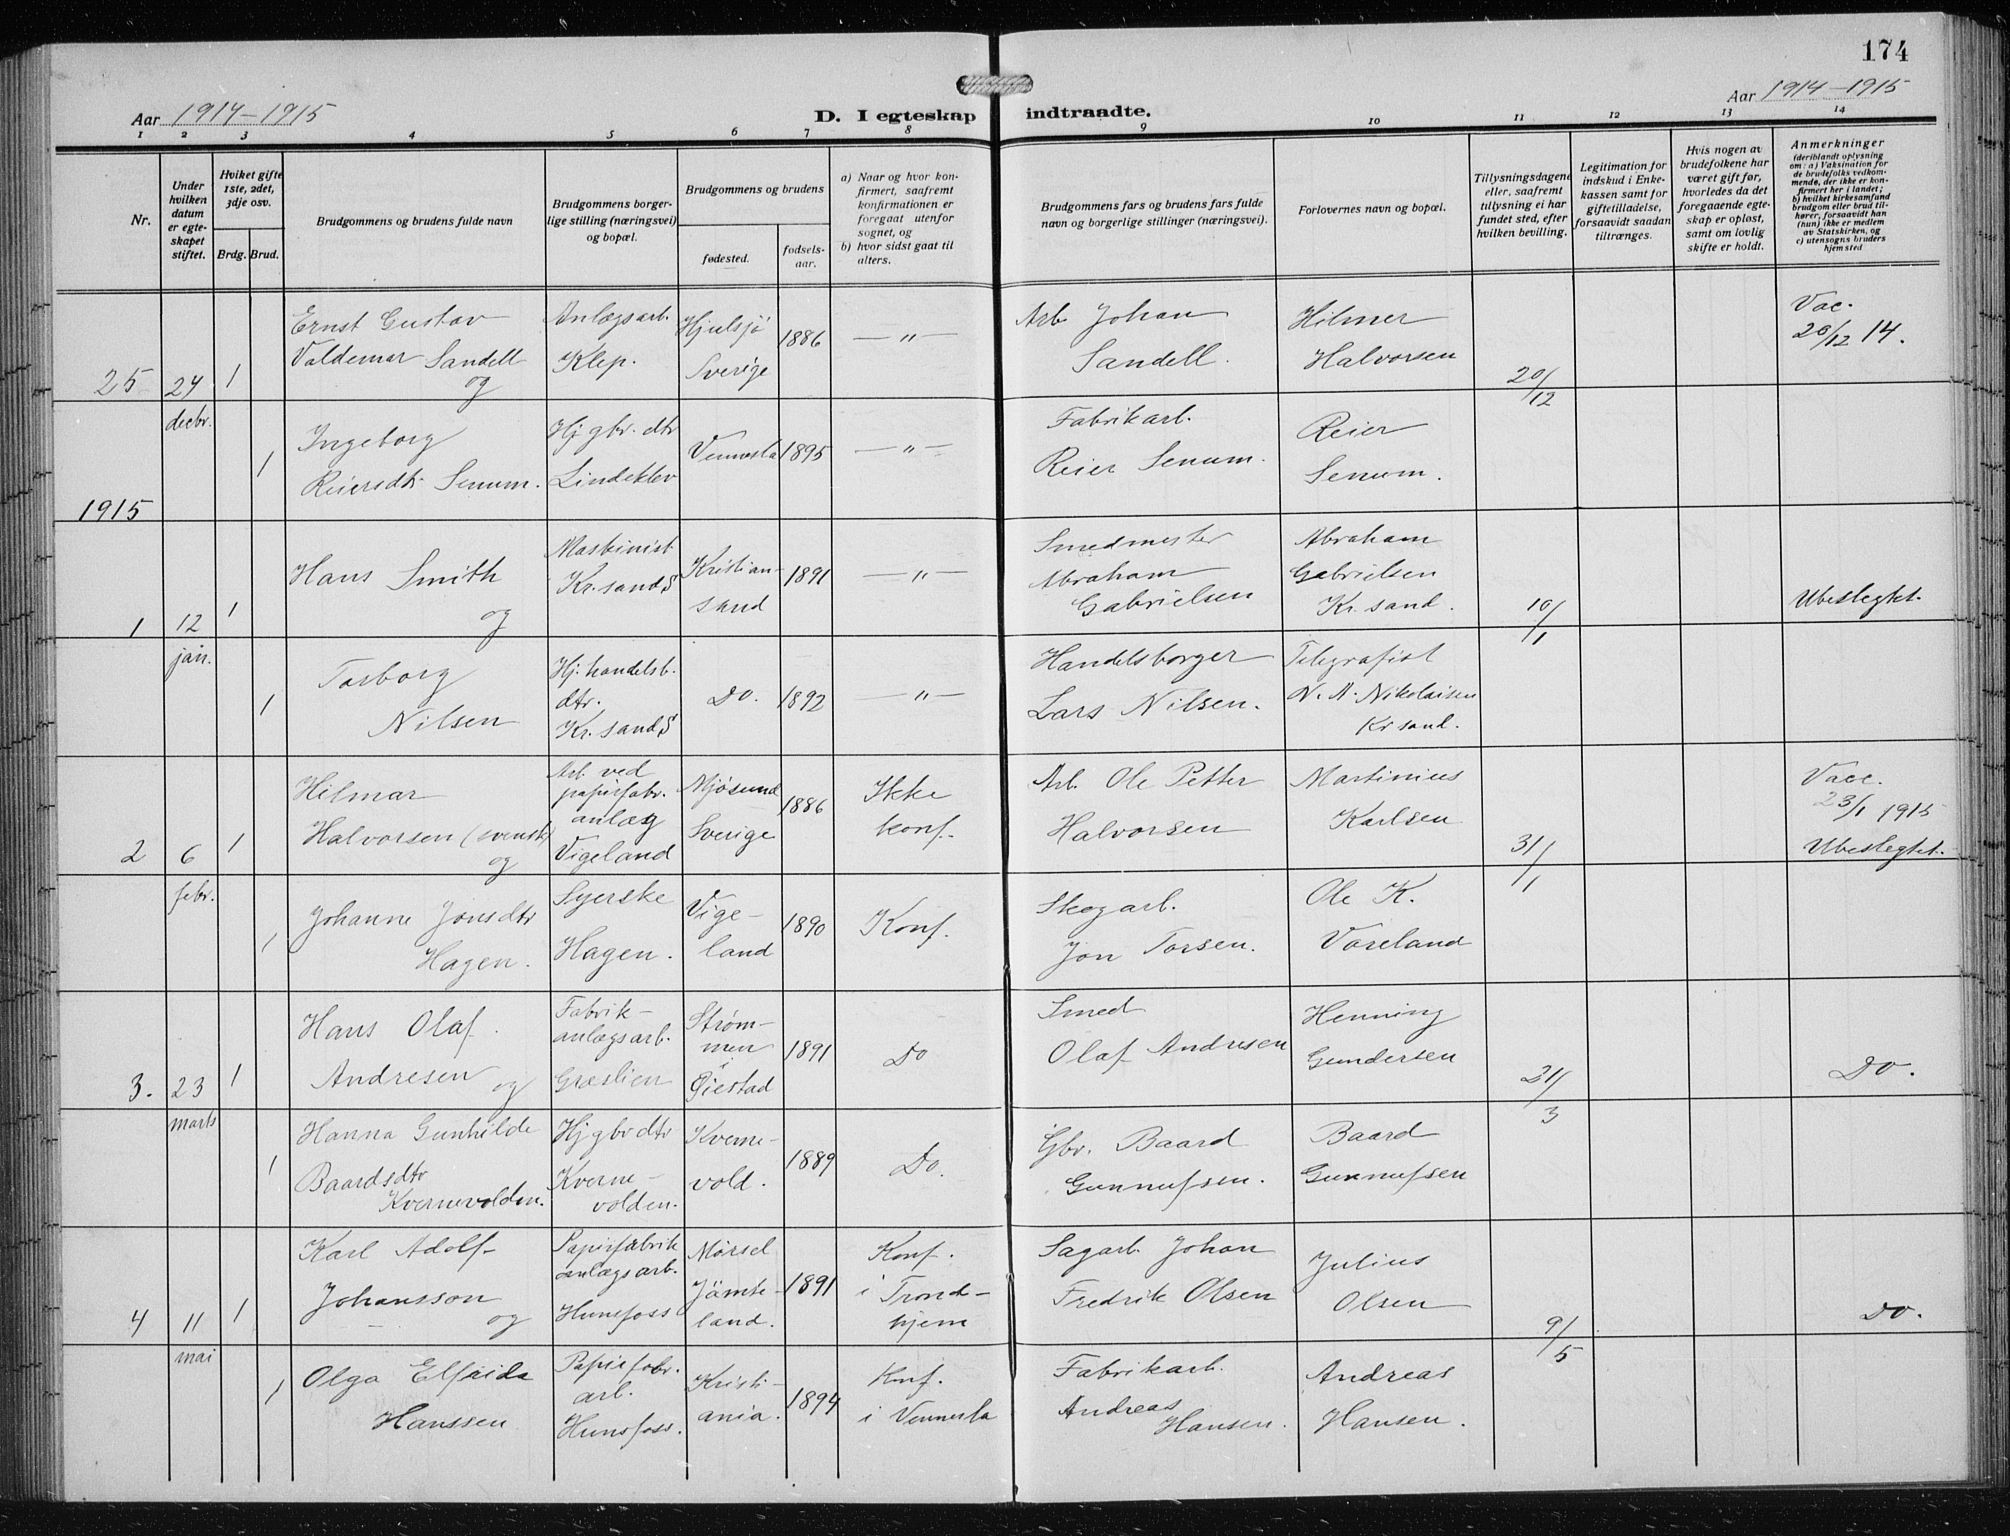 174
Aar 1914-1915
D. I egteskap indtraadte.
Aar 1914-1915
1 2 3 4 5 6 7 8 9 10 11 12 13 14
Nr.
Under hvilken datum er egteskapet stiftet.
Hviket gifte 1ste, 2det, 3dje osv.
Brdg. Brud.
Brudgommens og brudens fulde navn
Brudgommens borgerlige stilling (næringsvei) og bopæl.
Brudgommens og brudens
fødested.
fødselsaar.
a) Naar og hvor konfirmert, saafremt konfirmationen er foregaat utenfor sognet, og
b) hvor sidst gaat til alters.
Brudgommens fars og brudens fars fulde navn og borgerlige stillinger (næringsvei).
Forlovernes navn og bopæl.
Tillysningsdagene eller, saafremt tillysning ei har fundet sted, efter hvilken bevilling.
Legitimation for indskud i Enkekassen samt for giftetilladelse, forsaavidt saadan tiltrænges.
Hvis nogen av brudefolkene har været gift før, hvorledes da det foregaaende egteskap er opløst, samt om lovlig skifte er holdt.
Anmerkninger
(deriblandt oplysning om: a) Vaksination for de brudefolks vedkommende, der ikke er konfirmert her i landet; b) hvilket kirkesamfund brudgom eller brud tilhører, forsaavidt han (hun) ikke er medlem av Statskirken, og c) utensogns bruders hjemsted
25 24 1 Ernst Gustav Valdemar Sandell og
Anlægsarb. Klep.
Hjulsjö Sverige 1886 — " —
Arb. Johan Sandell.
Hilmer Halvorsen
20/12
Vac. 20/12 14.
decbr. 1 Ingeborg Reiersdtr Senum.
Hj gbr. dtr Lindeklev
Vennesla 1895 — " —
Fabrikarb. Reier Senum.
Reier Senum.
1915
1 12 1 Hans Smith og
Maskinist Kr.sand S
Kristiansand 1891 — " —
Smedmester Abraham Gabrielsen
Abraham Gabrielsen Kr.sand.
10/1
Ubeslegtet.
jan. 1 Torborg Nilsen
Hj. handelsb. dtr. Kr.sand S
Do. 1892 — " —
Handelsborger Lars Nilsen.
Telegrafist N. A. Nikolaisen Kr sand.
2 6 1 Hilmar Halvorsen (svensk) og
Arb. ved papirfabr. anlæg Vigeland
Mjösund Sverige 1886 Ikke konf.
Arb. Ole Petter Halvorsen
Martinius Karlsen
31/1
Vacc. 23/1 1915 Ubeslegtet.
febr. 1 Johanne Jonsdtr Hagen.
Syerske Hagen.
Vigeland 1890 Konf.
Skogarb. Jon Torsen.
Ole K. Voreland
3. 23 1 Hans Olaf Andresen og
Fabrikanlægsarb. Græslien
Strømmen i Øiestad 1891 Do
Smed Olaf Andresen
Henning Gundersen
21/3
Do.
marts 1 Hanna Gunhilde Baardsdtr Kvernevolden.
Hj gbr dtr Kvernevolden.
Kvernevold. 1889 Do.
Gbr. Baard Gunnufsen.
Baard Gunnufsen
4 11 1 Karl Adolf Johansson og
Papirfabrik anlægsarb. Hunsfoss
Mörsel Jämteland. 1891 Konf. i Trondhjem
Sagarb. Johan Fredrik Olsen
Julius Olsen
9/5
Do.
mai 1 Olga Elfrida Hanssen
Papirfabr. arb. Hunsfoss.
Kristiania. 1894 Konf. i Vennesla
Fabrikarb. Andreas Hansen.
Andreas Hansen.